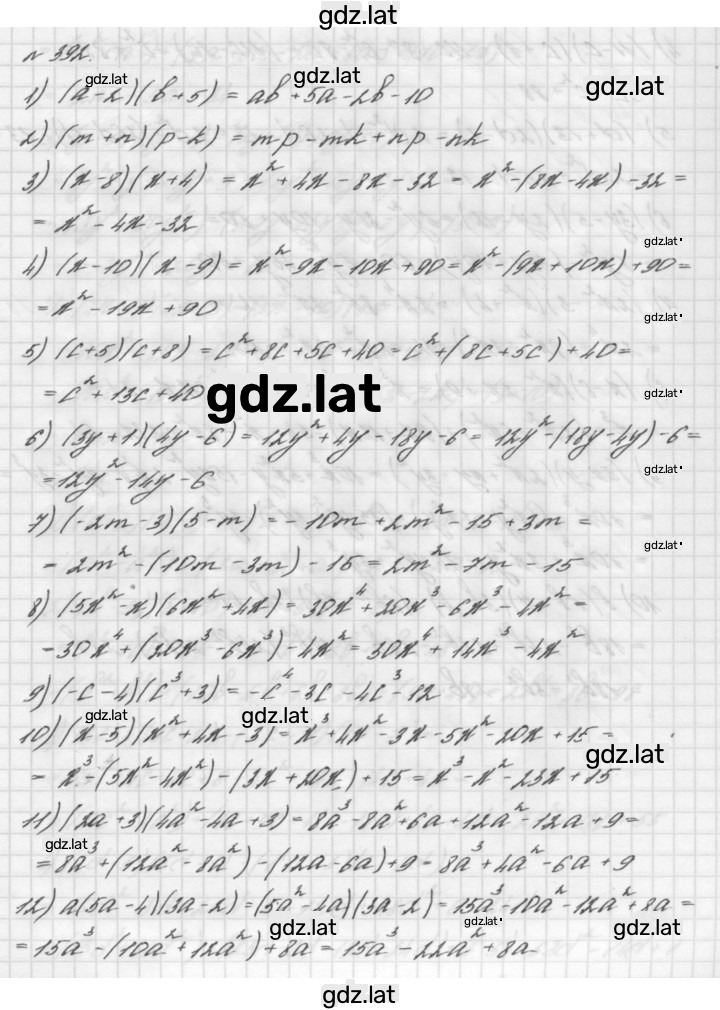 gdz.lat
№ 392.
gdz.lat gdz.lat gdz.lat
1) (a-2)(b+5) = ab+5a-2b-10
2) (m+n)(p-k) = mp-mk+np-nk
3) (x-8)(x+4) = x²+4x-8x-32 = x²-(8x-4x)-32 =
= x²-4x-32
gdz.lat
4) (x-10)(x-9) = x²-9x-10x+90 = x²-(9x+10x)+90 =
= x²-19x+90
gdz.lat
5) (c+5)(c+8) = c²+8c+5c+40 = c²+(8c+5c)+40 =
= c²+13c+40
gdz.lat gdz.lat
6) (3y+1)(4y-6) = 12y²+4y-18y-6 = 12y²-(18y-4y)-6 =
= 12y²-14y-6
gdz.lat
7) (-2m-3)(5-m) = -10m+2m²-15+3m =
= 2m²-(10m-3m)-15 = 2m²-7m-15
gdz.lat
8) (5x²-x)(6x²+4x) = 30x⁴+20x³-6x³-4x² =
= 30x⁴+(20x³-6x³)-4x² = 30x⁴+14x³-4x²
9) (-c-4)(c³+3) = -c⁴-3c-4c³-12
gdz.lat gdz.lat
10) (x-5)(x²+4x-3) = x³+4x²-3x-5x²-20x+15 =
gdz.lat
= x³-(5x²-4x²)-(3x+20x)+15 = x³-x²-23x+15
11) (2a+3)(4a²-4a+3) = 8a³-8a²+6a+12a²-12a+9 =
gdz.lat
= 8a³+(12a²-8a²)-(12a-6a)+9 = 8a³+4a²-6a+9
12) a(5a-4)(3a-2) = (5a²-4a)(3a-2) = 15a³-10a²-12a²+8a =
gdz.lat gdz.lat gdz.lat
= 15a³-(10a²+12a²)+8a = 15a³-22a²+8a
gdz.lat